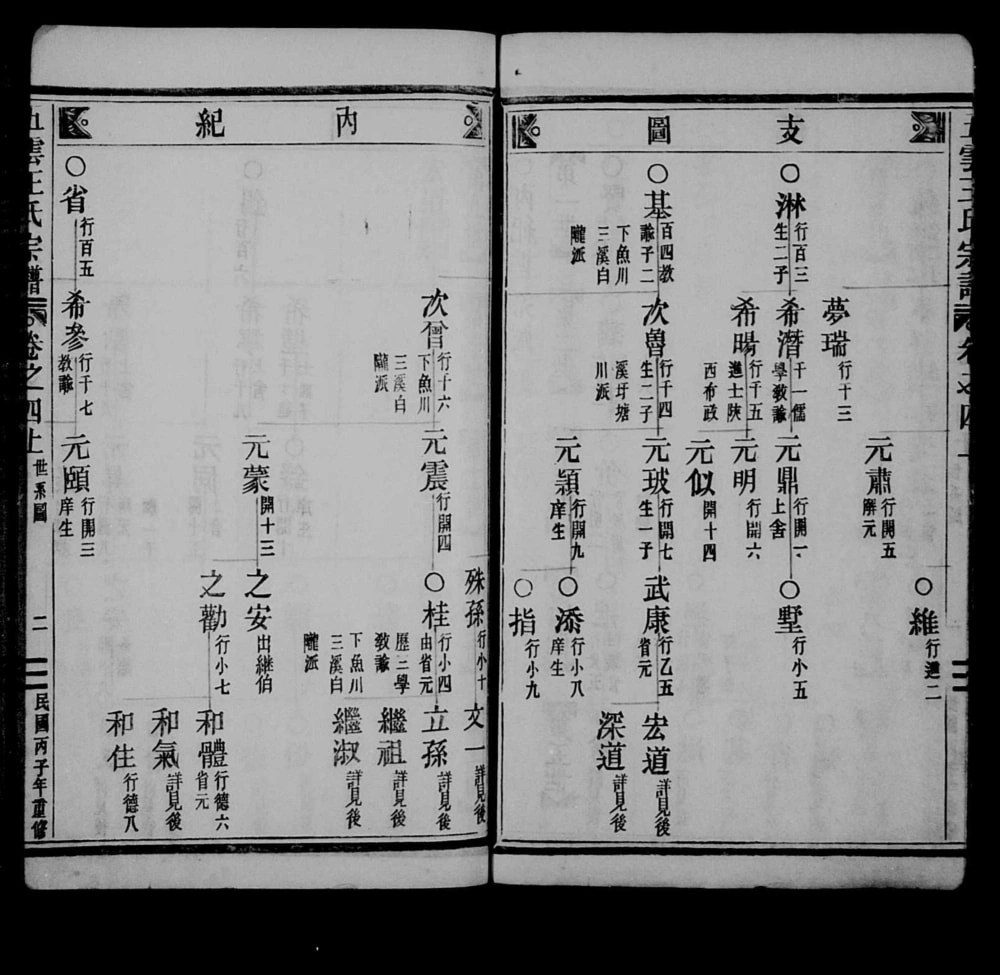 支圖
維 行遜二
元肅 行開五 廨元
夢瑞 行十三
淋 行百三 生二子
希潛 千一儒 學教諭
元鼎 行開一 上舍
墅 行小五
希暘 行千五 進士陝 西布政
元明 行開六
元似 開十四
基 百四教 諭子二 下魚川 三溪白 隴派
次魯 行千四 生二子 溪圩塘 川派
元玻 行開七 生一子
武康 行乙五 省元
宏道 詳見後
深道 詳見後
元穎 行開九 庠生
添 行小八 庠生
指 行小九
內紀
殊孫 行小十
文一 詳見後
次曾 行千六 下魚川 三溪白 隴派
元震 行開四
桂 行小四 由省元 歷三學 教諭 下魚川 三溪白 隴派
立孫 詳見後
繼祖 詳見後
繼淑 詳見後
元蒙 開十三
之安 出繼伯
之勸 行小七
和體 行德六 省元
和氣 詳見後
和住 行德八
省 行百五
希參 行千七 教諭
元頤 行開三 庠生
五雲王氏宗譜 卷之四上 世系圖 二 民國丙子年重修